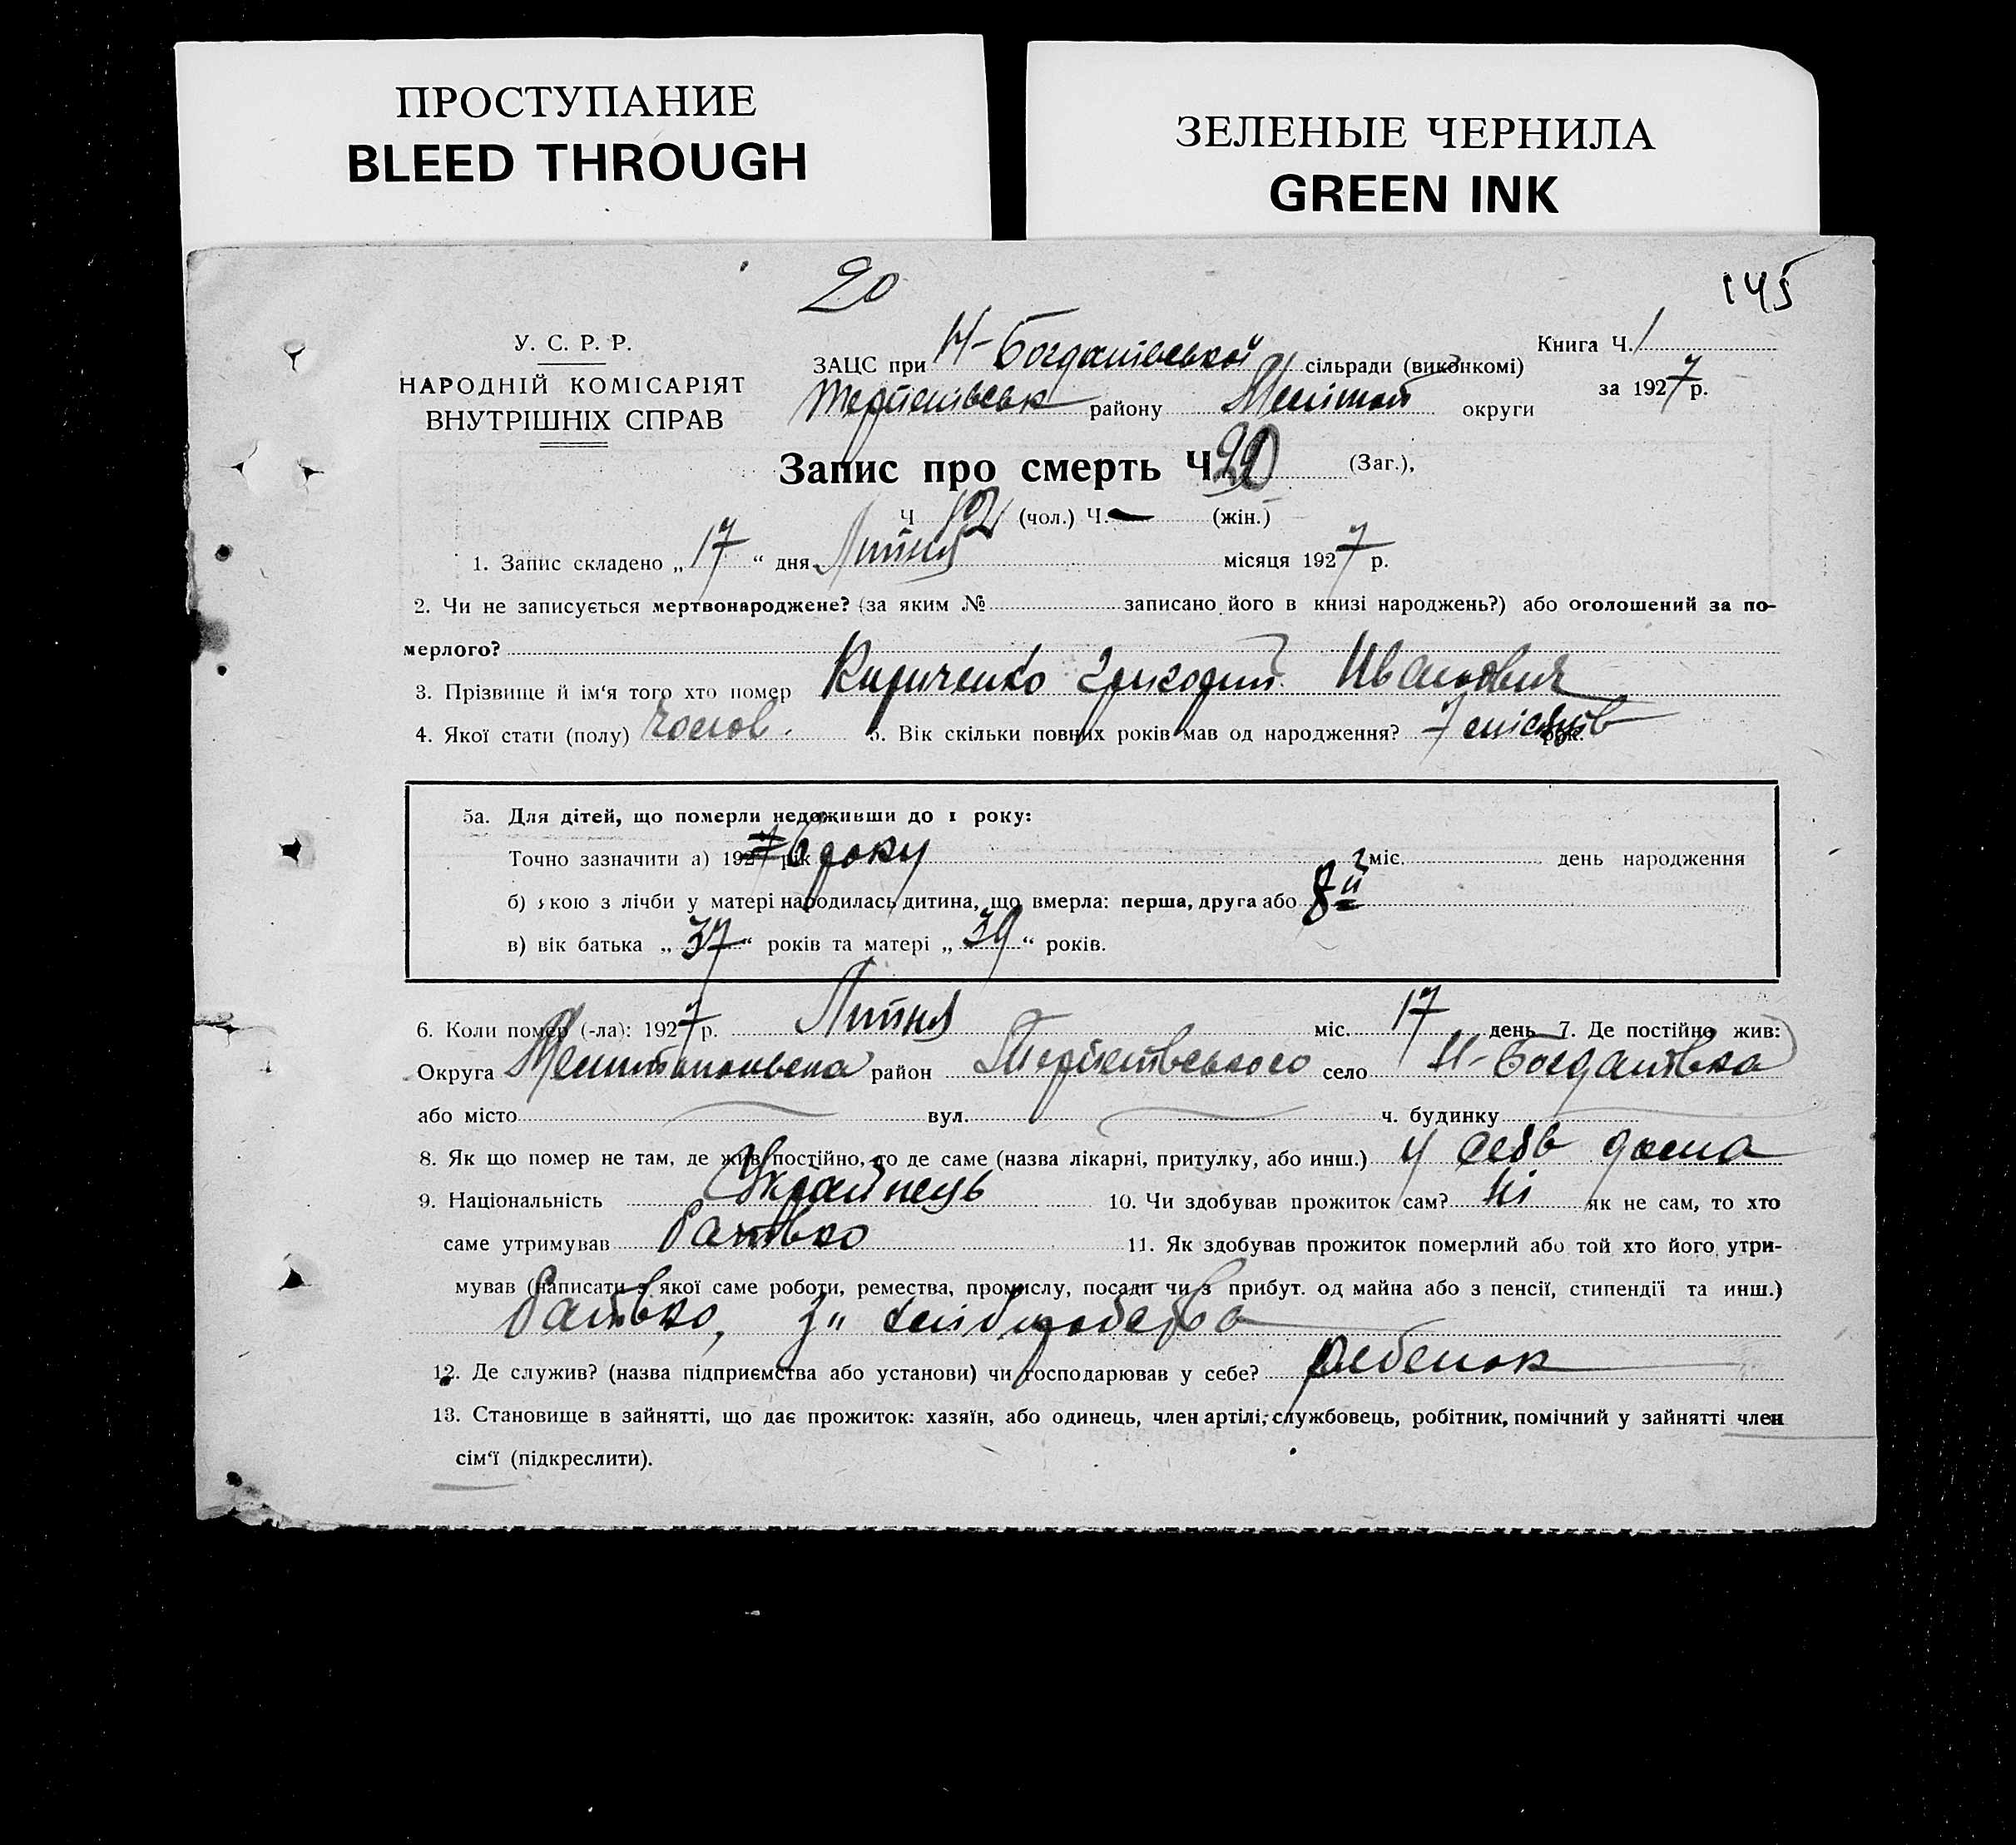 ПРОСТУПАНИЕ
BLEED THROUGH
ЗЕЛЕНЫЕ ЧЕРНИЛА
GREEN INK
20
145
У. С. Р. Р.
НАРОДНІЙ КОМІСАРІЯТ
ВНУТРІШНІХ СПРАВ
ЗАЦС при Н-Богданівської сільради (виконкомі)
району Меліт округи
Книга Ч. 1
за 1927 р.
Запис про смерть Ч 20 (Заг.),
Ч 12 (чол.) Ч. — (жін.)
1. Запис складено „17“ дня Липня місяця 1927 р.
2. Чи не записується мертвонароджене? (за яким № записано його в книзі народжень?) або оголошений за по-
мерлого?
3. Прізвище й ім'я того хто помер Кириченко Григорий Иванович
4. Якої стати (полу) чолов. 5. Вік скільки повних років мав од народження? 7 місяців рок.
5а. Для дітей, що померли недоживши до 1 року:
Точно зазначити а) 192 рік 6 року міс. день народження
б) якою з лічби у матері народилась дитина, що вмерла: перша, друга або 8й
в) вік батька „37“ років та матері „39“ років.
6. Коли помер (-ла): 1927 р. Липня міс. 17 день 7. Де постійно жив:
Округа Мелитопильска район село Н-Богданівка
або місто вул. ч. будинку
8. Як що помер не там, де жив постійно, то де саме (назва лікарні, притулку, або инш.) у себв дома
9. Національність Українець 10. Чи здобував прожиток сам? Ні як не сам, то хто
саме утримував батько 11. Як здобував прожиток померлий або той хто його утри-
мував (написати з якої саме роботи, ремества, промислу, посади чи з прибут. од майна або з пенсії, стипендії та инш.)
батько, з
12. Де служив? (назва підприємства або установи) чи господарював у себе? ребенок
13. Становище в зайнятті, що дає прожиток: хазяїн, або одинець, член артілі, службовець, робітник, помічний у зайнятті член
сім'ї (підкреслити).